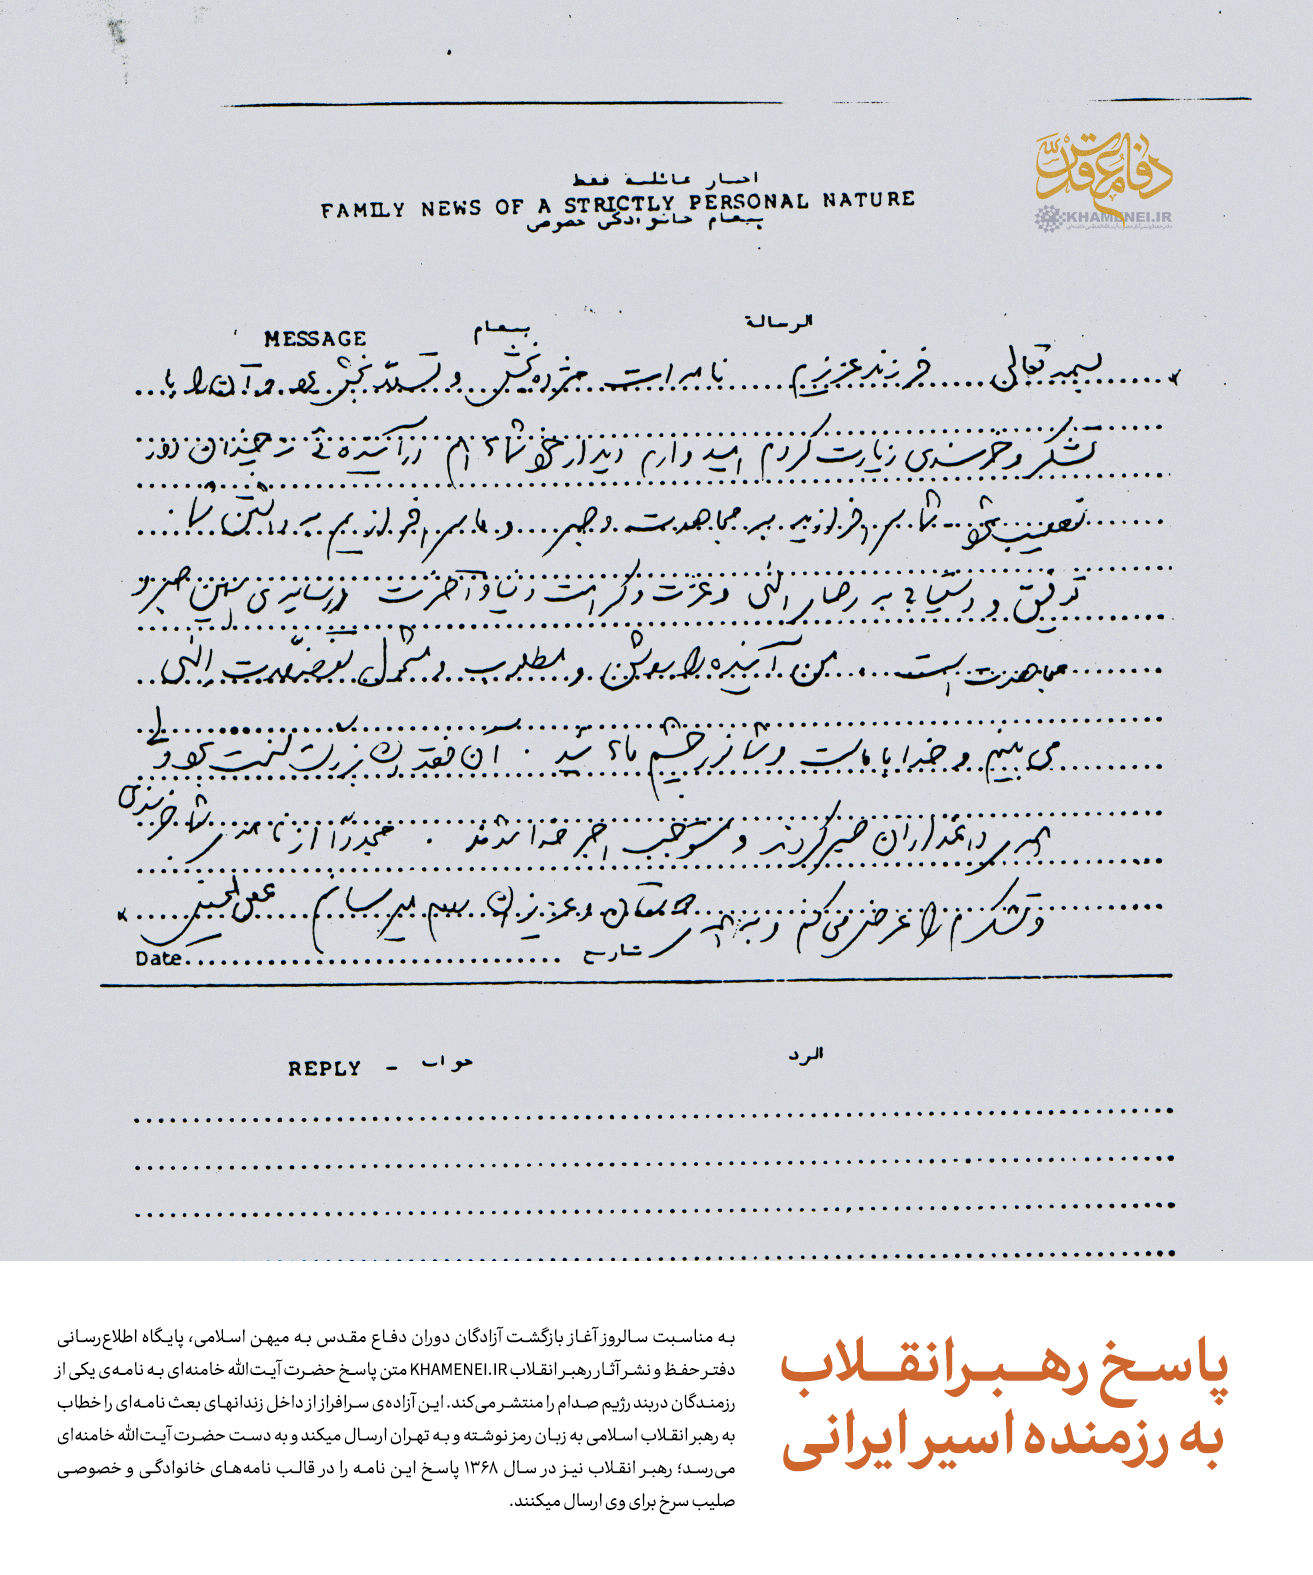 دفاع مقدس
KHAMENEI.IR
اخبار عائلية فقط
FAMILY NEWS OF A STRICTLY PERSONAL NATURE
پیغام خانوادگی خصوصی
الرسالة
پیغام
MESSAGE
بسمه تعالی فرزند عزیزم نامه‌ات مژده‌بخش و تسلّابخش بود و آن را با
تشکر و خرسندی زیارت کردم امیدوارم دیدار خود شما هم در آینده‌ئی نه چندان دور
نصیب شود. شما سرافرازید به مجاهدت و صبر و ما سرافرازیم به داشتن شما.
توفیق و دستیابی به رضای الهی و عزت و کرامت دنیا و آخرت در سایه‌ی همین صبر و
مجاهدت است. من آینده را روشن و مطلوب و مشمول تفضّلات الهی
می بینم و خدا با ماست و شما نور چشم ما هستید. آن فقدان بزرگ سخت بود ولی
همه‌ی داغداران صبر کردند و مستوجب اجر خدا شدند. مجدداً از نامه‌ی شما خرسندی
و تشکرم را عرض می‌کنم و به همه‌ی عزیزان سلام میرسانم علی الحسینی
تاریخ
Date
الرد
جواب
REPLY -
پاسخ رهبر انقلاب
به رزمنده اسیر ایرانی
به مناسبت سالروز آغاز بازگشت آزادگان دوران دفاع مقدس به میهن اسلامی، پایگاه اطلاع‌رسانی
دفتر حفظ و نشر آثار رهبر انقلاب KHAMENEI.IR متن پاسخ حضرت آیت‌الله خامنه‌ای به نامه‌ی یکی از
رزمندگان دربند رژیم صدام را منتشر می‌کند. این آزاده‌ی سرافراز از داخل زندانهای بعث نامه‌ای را خطاب
به رهبر انقلاب اسلامی به زبان رمز نوشته و به تهران ارسال میکند و به دست حضرت آیت‌الله خامنه‌ای
می‌رسد؛ رهبر انقلاب نیز در سال ۱۳۶۸ پاسخ این نامه را در قالب نامه‌های خانوادگی و خصوصی
صلیب سرخ برای وی ارسال میکنند.